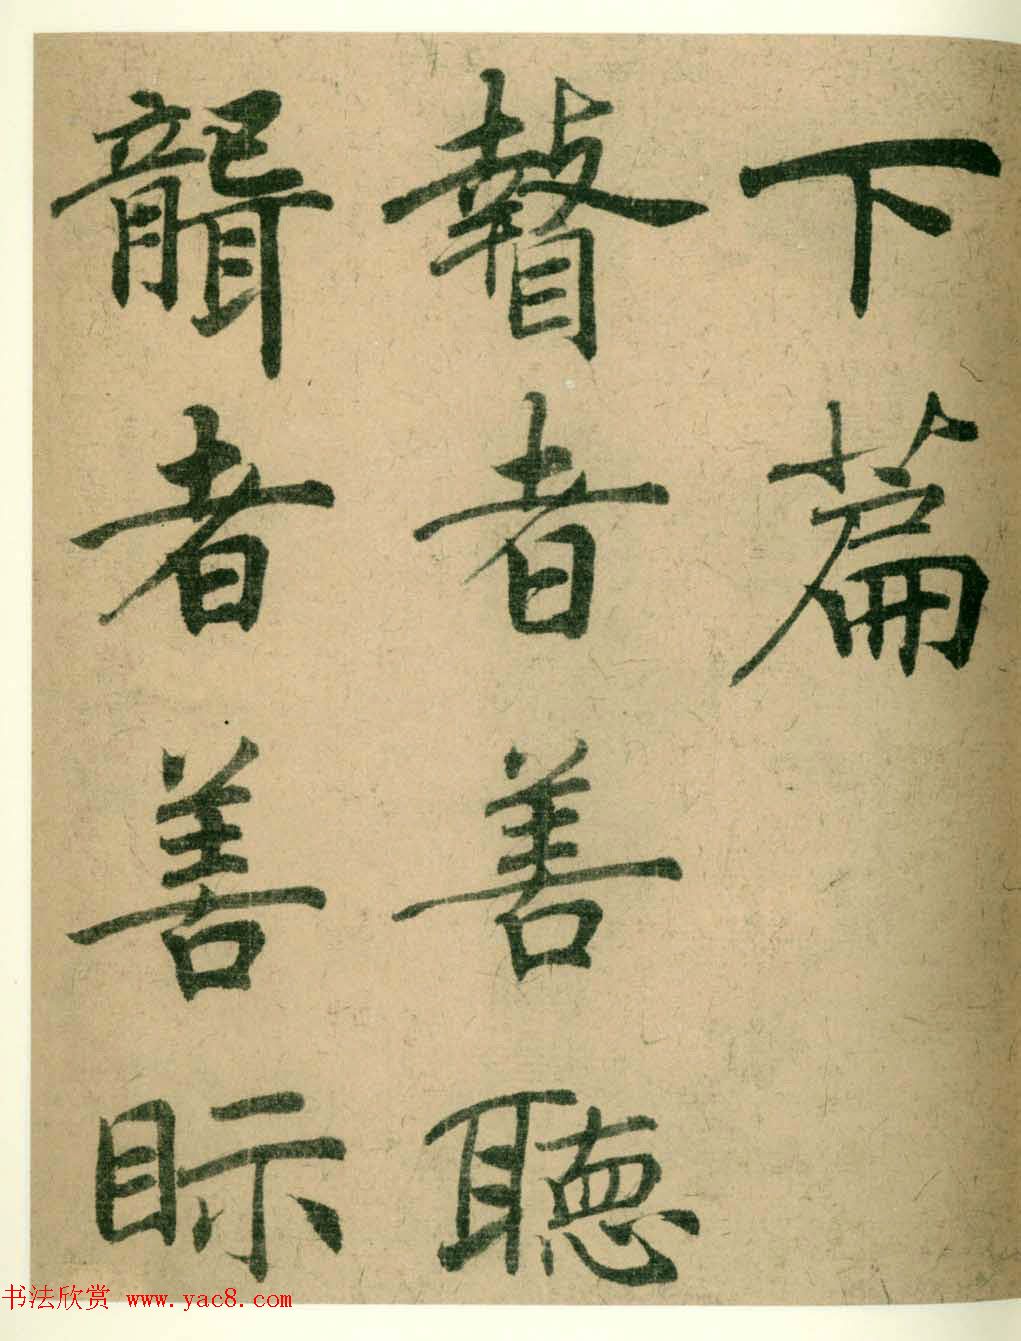 下篇
瞽者善聽
聾者善眎
书法欣赏 www.yac8.com